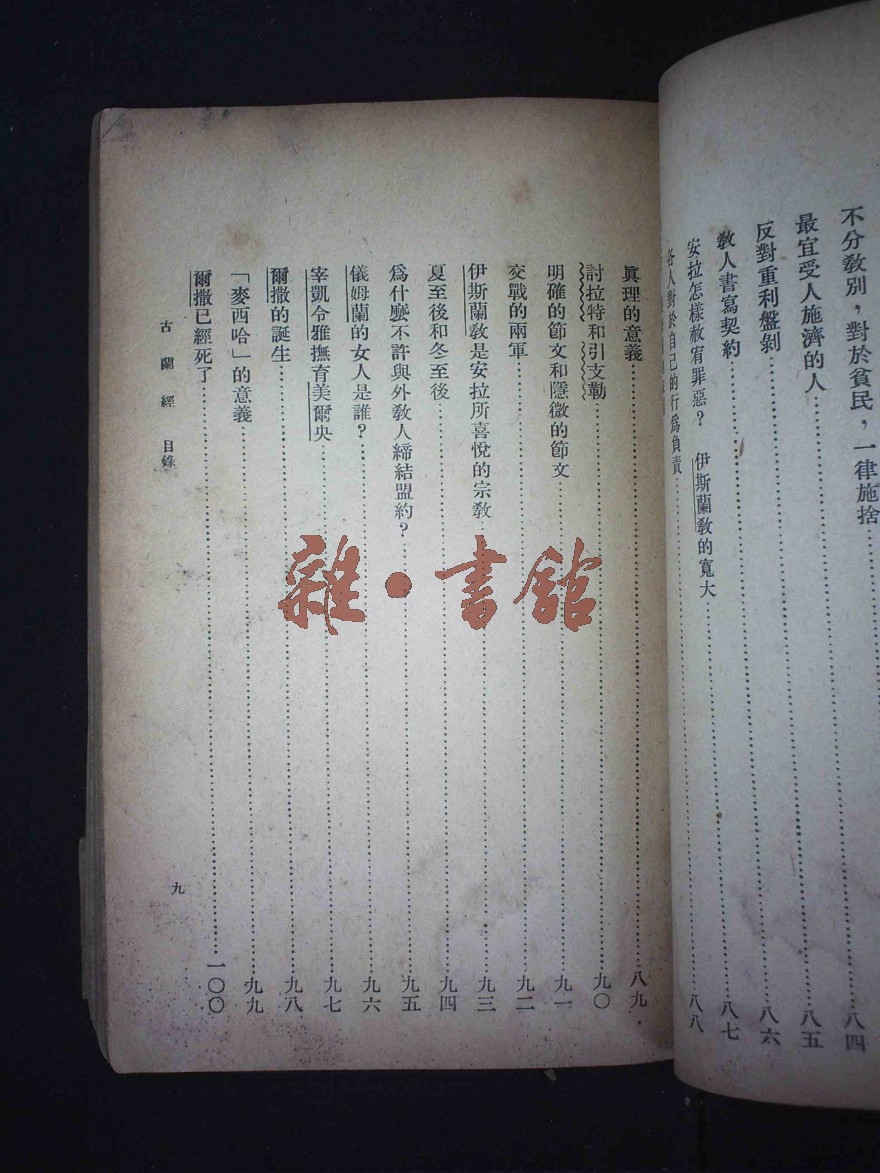 不分敎別，對於貧民，一律施捨………八四
最宜受人施濟的人………八五
反對重利盤剝………八六
敎人書寫契約………八七
安拉怎樣赦宥罪惡？　伊斯蘭敎的寬大………八八
各人對於自己的行爲負責
眞理的意義………八九
討拉特和引支勒………九〇
明確的節文和隱微的節文………九一
交戰的兩軍………九二
伊斯蘭敎是安拉所喜悅的宗敎………九三
夏至後和冬至後………九四
爲什麼不許與外敎人締結盟約？………九五
儀姆蘭的女人是誰？………九六
宰凱令雅撫育美爾央………九七
爾撒的誕生………九八
「麥西哈」的意義………九九
爾撒已經死了………一〇〇
古蘭經　目錄
九
雜·書館